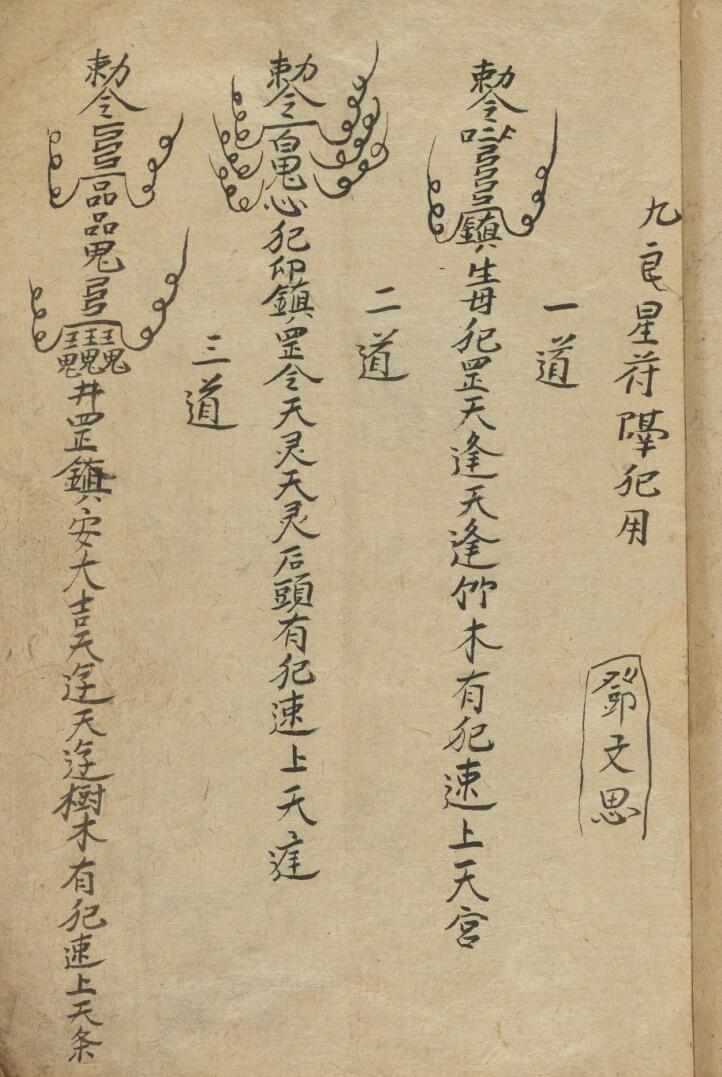 九良星符犯用
鄧文思
一道
敕令鎮生毋犯罡天逢天逢竹木有犯速上天宮
二道
敕令百鬼心犯印鎮罡令天灵天灵石頭有犯速上天庭
三道
敕令品品鬼井罡鎮安大吉天天樹木有犯速上天条